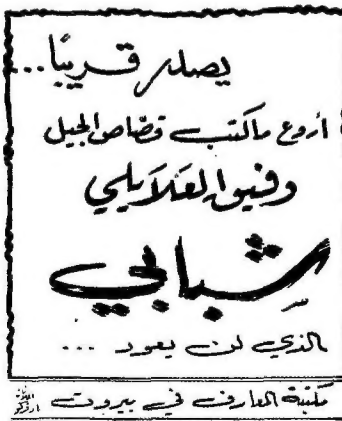 يصدر قريبًا...
أروع ماكتب قصّاص الجيل
وفيق العلايلي
شبابي
الذي لن يعود ...
مكتبة المعارف في بيروت